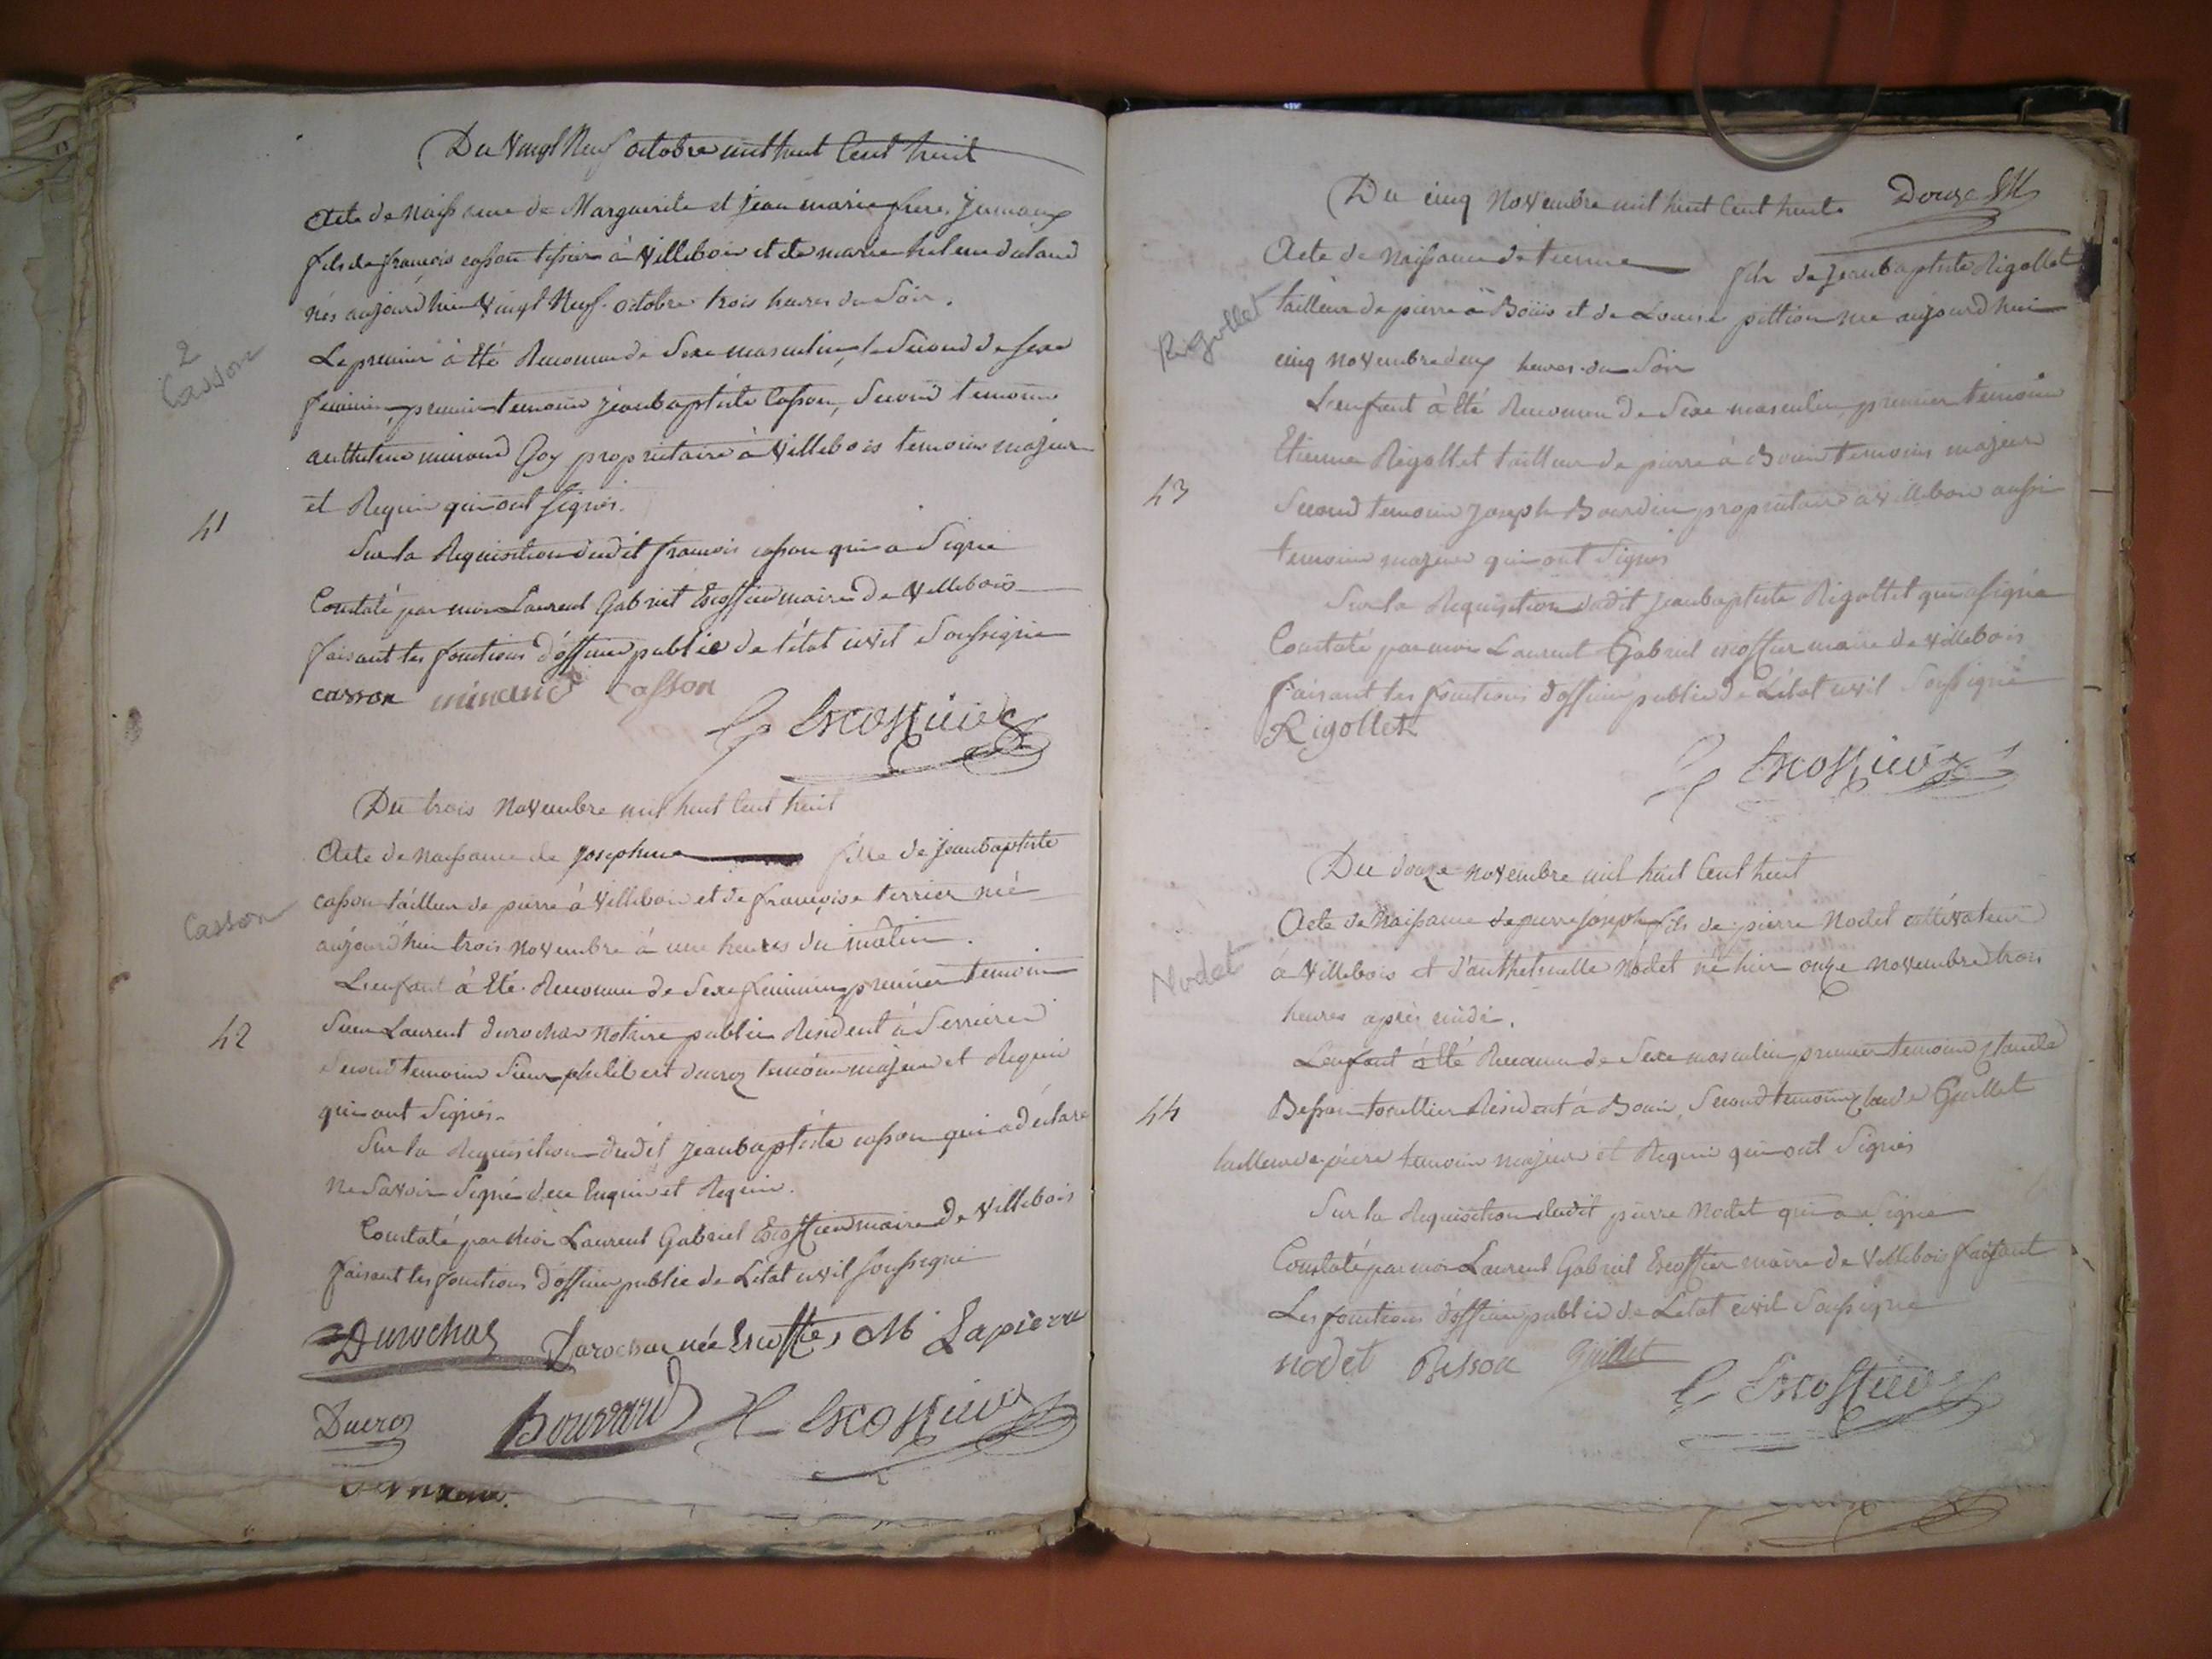 Du vingt Neuf octobre mil huit Cent huit
Acte de Naissance de Marguerite et jean marie frere jumaux
fils de françois casson tissier à Villebois et de marie helene
nés aujourdhui Vingt Neuf octobre trois heures du Soir.
2
Casson
Le premier à été Reconnu de Sexe masculin, le Second de Sexe
feminin, premier temoin jeanbaptiste Casson, Second temoin
anthelme minand Goy propriétaire à Villebois temoins majeur
et Requis qui ont signés.
41
Sur la Requisition dudit francois casson qui a Signé
Constaté par moi Laurent Gabriel Escoffier maire de Villebois
faisant les fonctions d'officier public de l'état civil Soussigné
casson minand casson
Escoffier
Du trois Novembre mil huit Cent huit
Acte de naissance de josephine fille de jeanbaptiste
casson tailleur de pierre à Villebois et de françoise terrier née
Casson
aujourd'hui trois Novembre à une heures du mâtin.
L'enfant à été Reconnu de Sexe feminin premier temoin
42
Sieur Laurent durochat Notaire public Résident à Serrieres
Second temoin Sieur philibert ducroz temoins majeur et Requis
qui ont Signés.
Sur la Requisition dudit jeanbaptiste casson qui a déclaré
ne Savoir Signé de ce Enquis et Requis.
Constaté par Moi Laurent Gabriel Escoffier maire de Villebois
faisant les fonctions d'officier public de L'état civil soussigné
Durochat Durochat née Escoffier M Lapierre
Ducroz Bourrard Escoffier
Du cinq Novembre mil huit Cent huit Douze
Acte de Naissance detienne fils de jeanbaptiste Rigollet
Rigollet
tailleur de pierre à Bouis et de Louise pittion née aujourd'hui
cinq Novembre deux heures du Soir
L'enfant à été Reconnu de Sexe masculin, premier temoin
Etienne Rigollet tailleur de pierre à Bouis temoins majeur
43
Second temoin joseph Bourdin propriétaire à Villebois aussi
temoin majeur qui ont Signés
Sur la Requisition dudit jeanbaptiste Rigollet qui a signé
Constaté par moi Laurent Gabriel escoffier maire de Villebois
faisant les fonctions d'officier public de L'état civil Soussigné
Rigollet
Escoffier
Du douze Novembre mil huit Cent huit
Acte de Naissance de pierre joseph fils de pierre Nodet cultivateur
Nodet
à Villebois et d'anthelmette Nodet né hier onze novembre trois
heures après midi.
L'enfant à été Reconnu de Sexe masculin premier temoin Claude
44
Besson Résident à Bouis, Second temoin Claude Guillet
tailleur de pierre temoins majeur et Requis qui ont Signés
Sur la Requisition dudit pierre Nodet qui a Signé
Constaté par moi Laurent Gabriel Escoffier maire de Villebois faisant
Les fonctions d'officier public de L'état civil Soussigné
nodet Besson Guillet
Escoffier